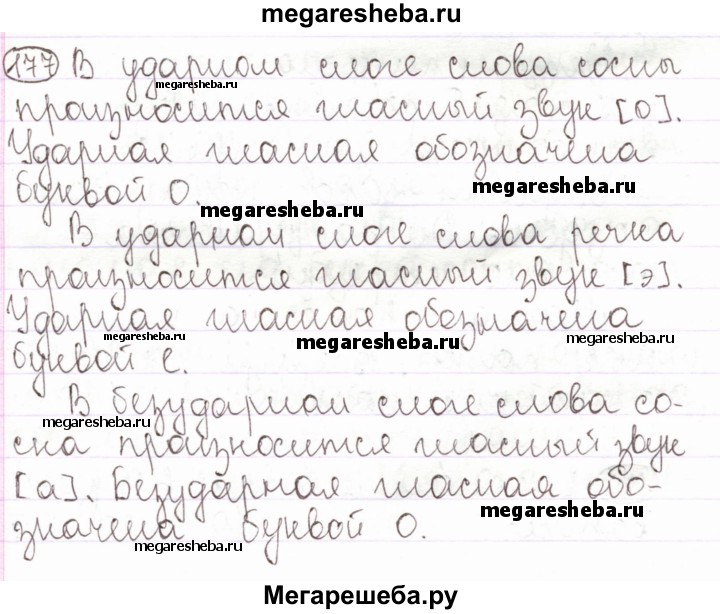 megaresheba.ru
177 В ударном слоге слова сосны
megaresheba.ru
произносится гласный звук [о].
Ударная гласная обозначена
буквой О.
megaresheba.ru
megaresheba.ru
В ударном слоге слова речка
произносится гласный звук [э].
Ударная гласная обозначена
megaresheba.ru
megaresheba.ru
буквой е.
В безударном слоге слова со-
megaresheba.ru
megaresheba.ru
сна произносится гласный звук
[а]. Безударная гласная обо-
megaresheba.ru
значена буквой О.
megaresheba.ru
Мегарешеба.ру